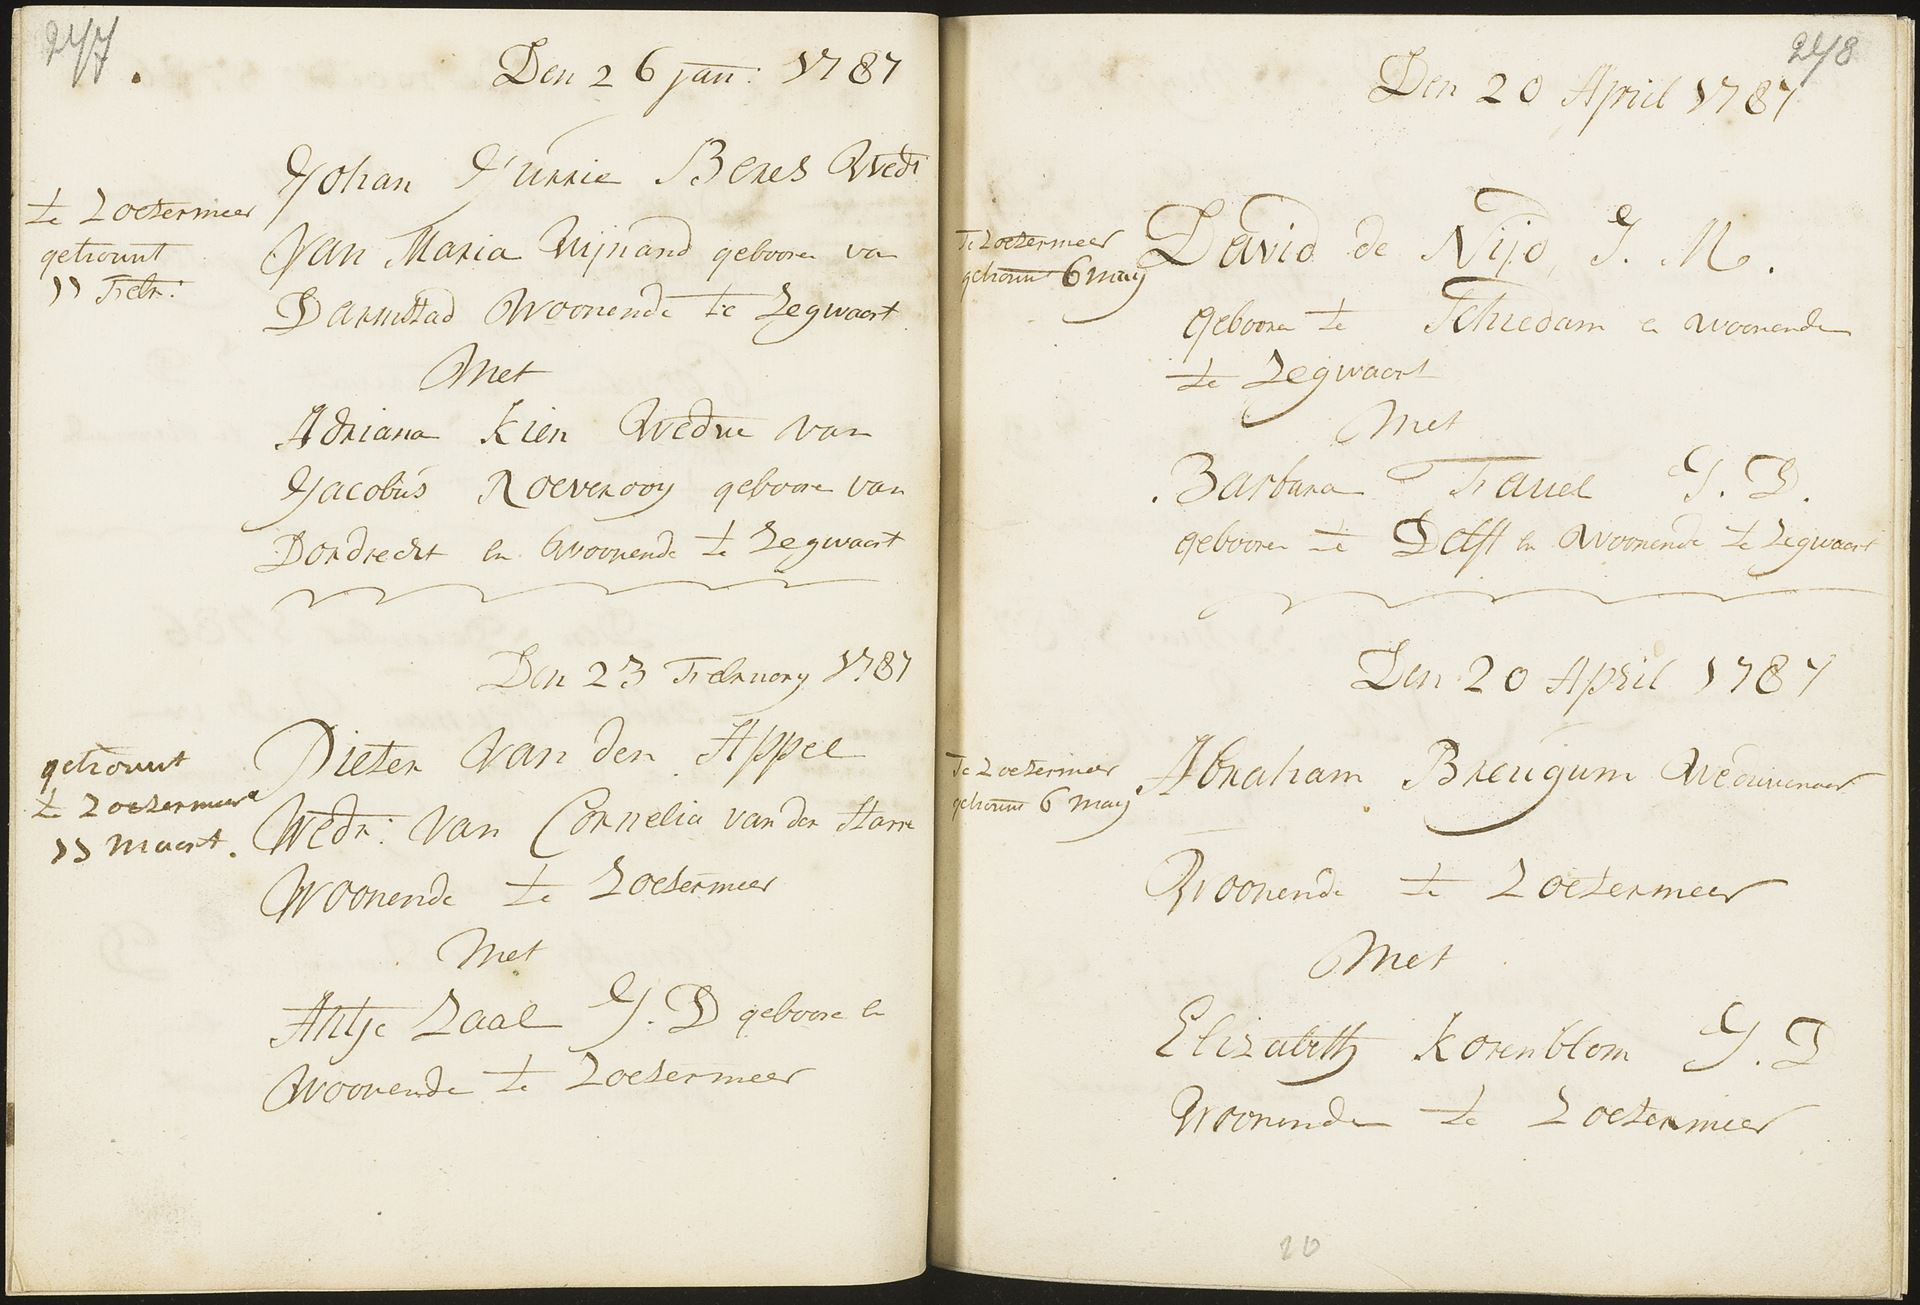 247
Den 26 jan: 1787
te Zoetermeer
getrouwt
11 Febr:
Johan Jurrie Beres Wedr
van Maria Wijnand geboore van
Darmstad Woonende te Zegwaart
Met
Adriana Kien Wedue van
Jacobus Roeverooy geboore van
Dordrecht en Woonende te Zegwaart
Den 23 February 1787
getrouwt
te Zoetermeer
11 Maart.
Pieter van den Appel
Wedr: van Cornelia van der Starre
Woonende te Zoetermeer
Met
Antje Zaal J. D geboore en
Woonende te Zoetermeer
248
Den 20 April 1787
Te Zoetermeer
getrouwt 6 may
David de Nijs, J. M.
gebooren te Schiedam en woonende
te Zegwaart
Met
Barbara J. D.
gebooren te Delft en Woonende te Zegwaart
Den 20 April 1787
Te Zoetermeer
getrouwt 6 may
Abraham Breugum Weduwenaar
Woonende te Zoetermeer
Met
Elizabeth Korenblom J. D
Woonende te Zoetermeer